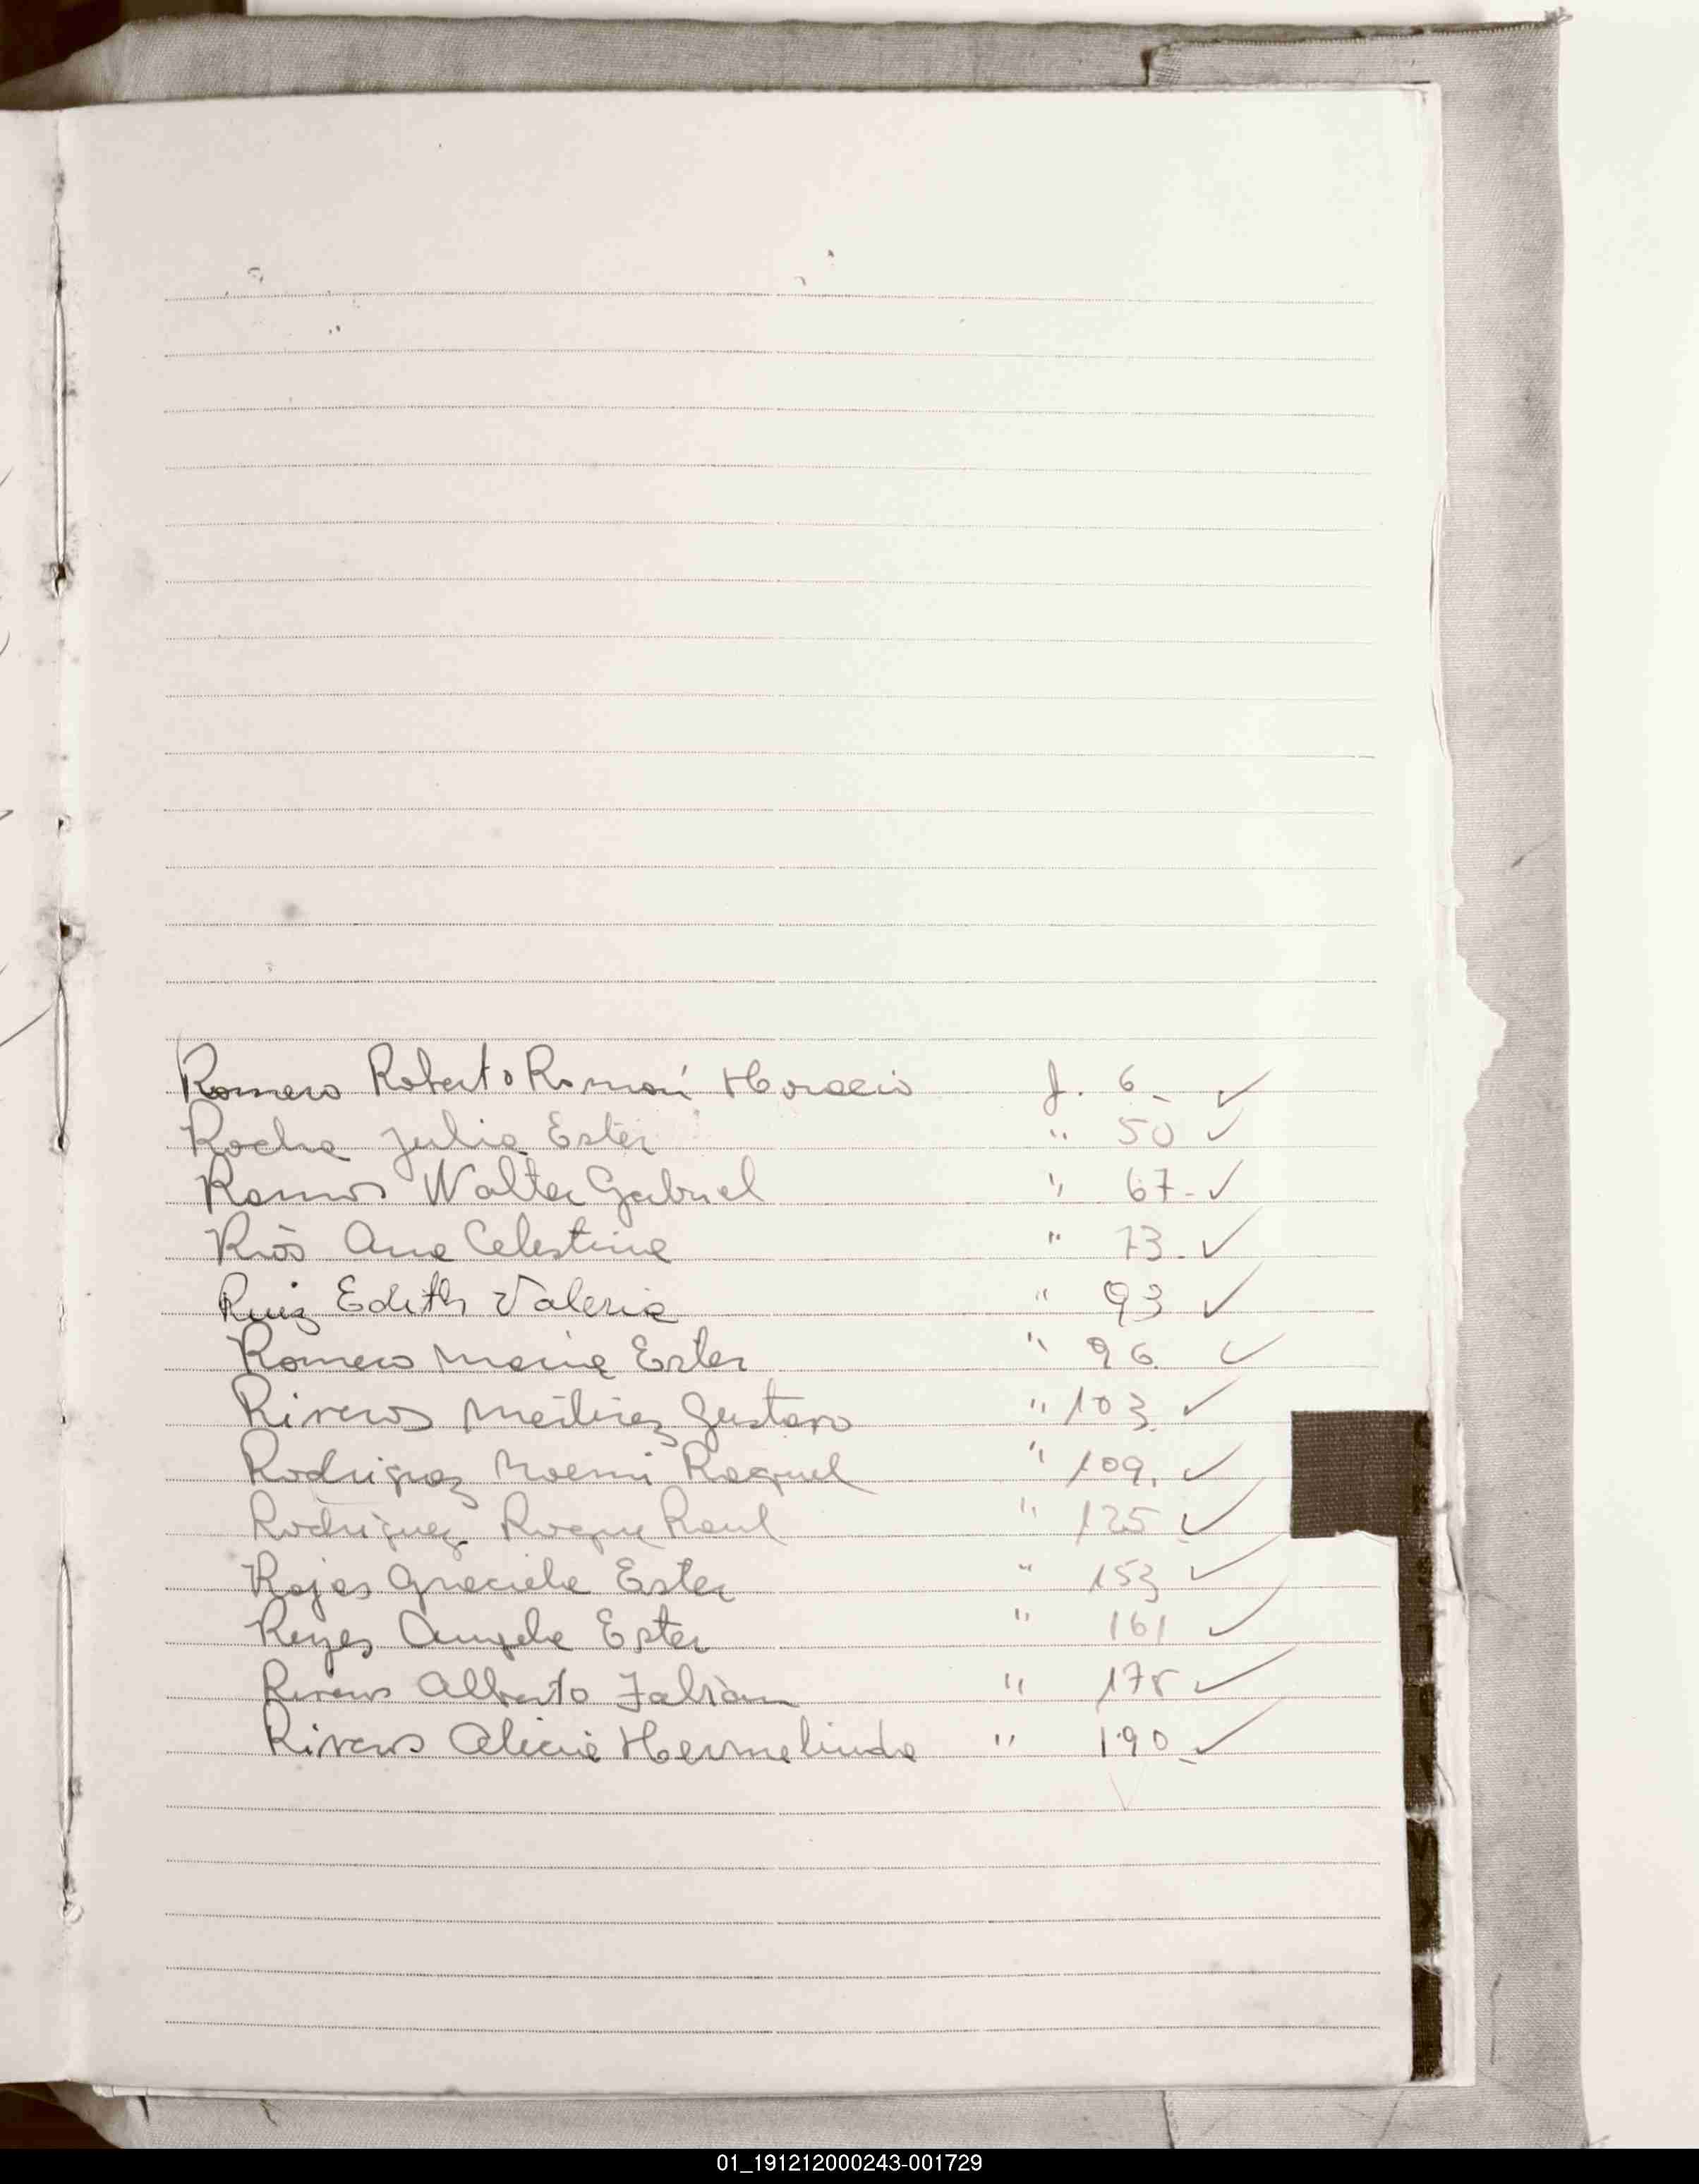 Romero Roberto Román Horacio f. 6 ✓
Rocha Julia Ester " 50 ✓
Ramos Walter Gabriel " 67- ✓
Riòs Ana Celestina " 73- ✓
Ruiz Edith Valeria " 93 ✓
Romero Maria Ester " 96 ✓
Riveros Gustavo " 103 ✓
Rodriguez Noemi Raquel " 109. ✓
Rodriguez Roque Raul " 125 ✓
Rojas Graciela Ester " 153 ✓
Reyes Angela Ester " 161 ✓
Riveros Alberto Fabian " ✓
Riveros Alicia Hermelinda " 190 ✓
01_191212000243-001729